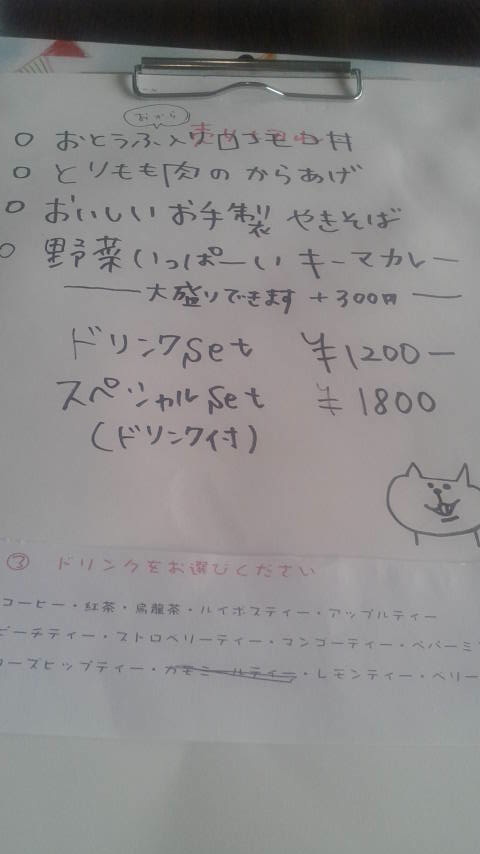 おから
○ おとうふ入 売切
○ とりもも肉のからあげ
○ おいしいお手製やきそば
○ 野菜いっぱーいキーマカレー
大盛りできます +300円
ドリンクSet ¥1200-
スペシャルSet ¥1800
(ドリンク付)
③ ドリンクをお選びください
コーヒー・紅茶・烏龍茶・ルイボスティー・アップルティー
ピーチティー・ストロベリーティー・マンゴーティー・ペパーミ
ローズヒップティー・カモミールティー・レモンティー・ベリー